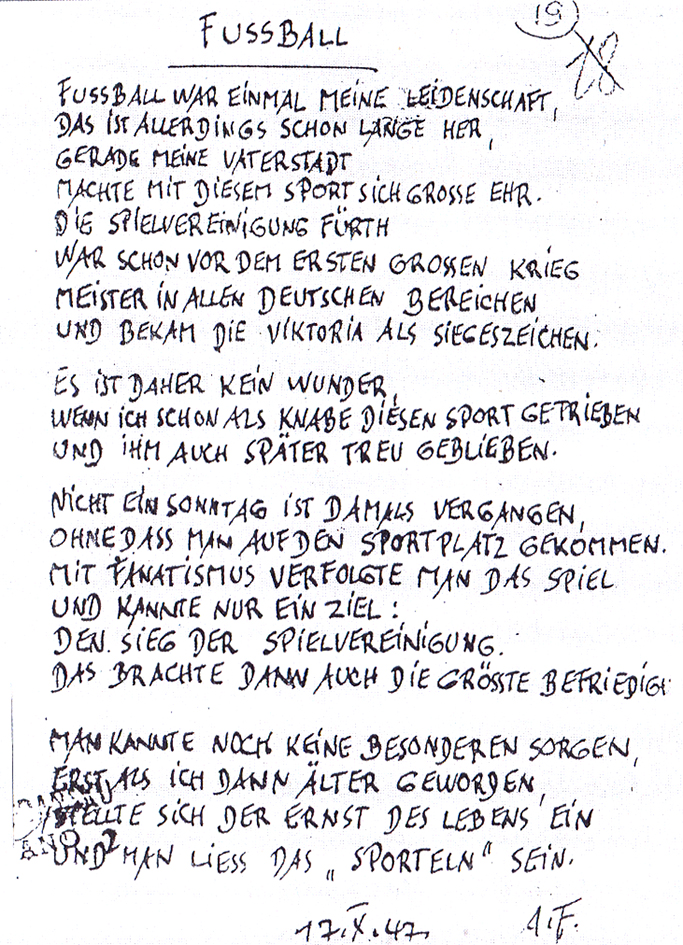 19
18
FUSSBALL
FUSSBALL WAR EINMAL MEINE LEIDENSCHAFT,
DAS IST ALLERDINGS SCHON LANGE HER,
GERADE MEINE VATERSTADT
MACHTE MIT DIESEM SPORT SICH GROSSE EHR.
DIE SPIELVEREINIGUNG FÜRTH
WAR SCHON VOR DEM ERSTEN GROSSEN KRIEG
MEISTER IN ALLEN DEUTSCHEN BEREICHEN
UND BEKAM DIE VIKTORIA ALS SIEGESZEICHEN.
ES IST DAHER KEIN WUNDER,
WENN ICH SCHON ALS KNABE DIESEN SPORT GETRIEBEN
UND IHM AUCH SPÄTER TREU GEBLIEBEN.
NICHT EIN SONNTAG IST DAMALS VERGANGEN,
OHNE DASS MAN AUF DEN SPORTPLATZ GEKOMMEN.
MIT FANATISMUS VERFOLGTE MAN DAS SPIEL
UND KANNTE NUR EIN ZIEL:
DEN SIEG DER SPIELVEREINIGUNG.
DAS BRACHTE DANN AUCH DIE GRÖSSTE BEFRIEDIGU
MAN KANNTE NOCH KEINE BESONDEREN SORGEN,
ERST ALS ICH DANN ÄLTER GEWORDEN,
STELLTE SICH DER ERNST DES LEBENS EIN
UND MAN LIESS DAS „SPORTELN" SEIN.
17.X.42. A.F.